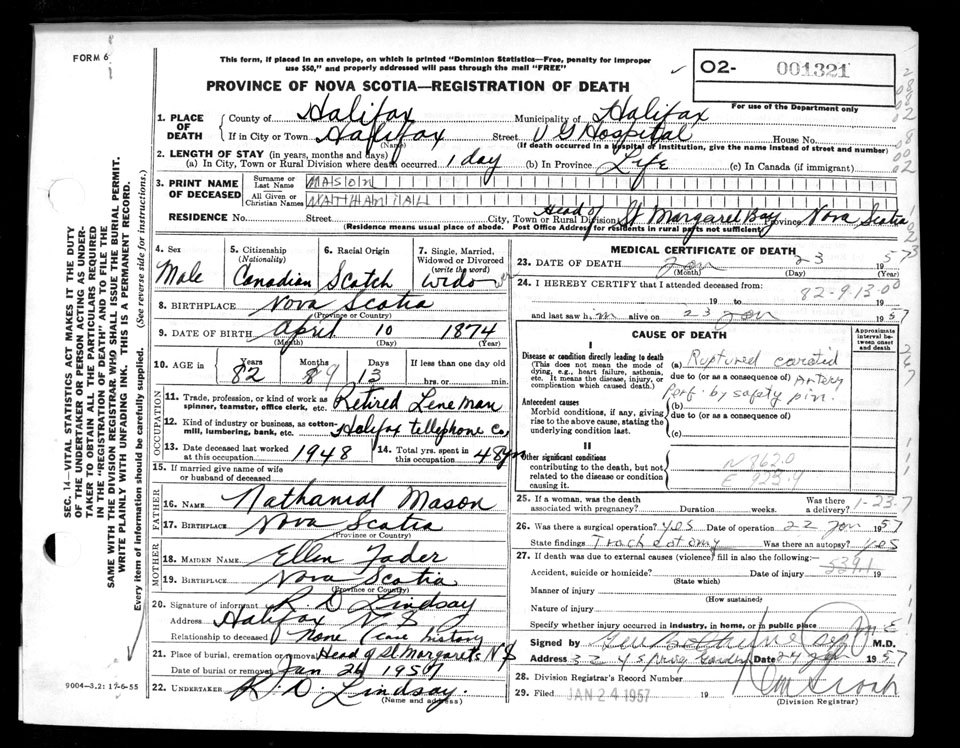 FORM 6
This form, if placed in an envelope, on which is printed "Dominion Statistics—Free, penalty for improper
use $50," and properly addressed will pass through the mail "FREE"
PROVINCE OF NOVA SCOTIA—REGISTRATION OF DEATH
02- 001321
For use of the Department only
1. PLACE OF DEATH
County of Halifax Municipality of Halifax
If in City or Town Halifax Street V G Hospital House No.
(Name) (If death occurred in a hospital or institution, give the name instead of street and number)
2. LENGTH OF STAY (in years, months and days)
(a) In City, Town or Rural Division where death occurred 1 day (b) In Province Life (c) In Canada (if immigrant)
3. PRINT NAME OF DECEASED
Surname or Last Name MASON
All Given or Christian Names NATHANIAL
RESIDENCE No. Street City, Town or Rural Division Head of St Margaret Bay Province Nova Scotia
(Residence means usual place of abode. Post Office Address for residents in rural parts not sufficient)
4. Sex Male
5. Citizenship (Nationality) Canadian
6. Racial Origin Scotch
7. Single, Married, Widowed or Divorced (write the word) Widow
8. BIRTHPLACE Nova Scotia
(Province or Country)
9. DATE OF BIRTH April 10 1874
(Month) (Day) (Year)
10. AGE in Years 82 Months 9 Days 13 If less than one day old hrs. or min.
OCCUPATION
11. Trade, profession, or kind of work as spinner, teamster, office clerk, etc. Retired Lineman
12. Kind of industry or business, as cotton-mill, lumbering, bank, etc. Halifax telephone Co
13. Date deceased last worked at this occupation 1948
14. Total yrs. spent in this occupation 48 yrs
15. If married give name of wife or husband of deceased
FATHER
16. NAME Nathanial Mason
17. BIRTHPLACE Nova Scotia
(Province or Country)
MOTHER
18. MAIDEN NAME Ellen Fader
19. BIRTHPLACE Nova Scotia
(Province or Country)
20. Signature of informant R D Lindsay
Address Halifax N S
Relationship to deceased None (case history
21. Place of burial, cremation or removal Head of St Margarets N S
Date of burial or removal Jan 26 1957
22. UNDERTAKER R. D. Lindsay.
(Name and address)
MEDICAL CERTIFICATE OF DEATH
23. DATE OF DEATH Jan 23 1957
(Month) (Day) (Year)
24. I HEREBY CERTIFY that I attended deceased from: 82-9-13-00
19 to 19
and last saw him alive on 23 Jan 1957
CAUSE OF DEATH
Approximate interval between onset and death
I
Disease or condition directly leading to death
(This does not mean the mode of dying, e.g., heart failure, asthenia, etc. It means the disease, injury, or complication which caused death.)
(a) Ruptured carotid
due to (or as a consequence of) Artery
Antecedent causes
Morbid conditions, if any, giving rise to the above cause, stating the underlying condition last.
Perf. by safety pin.
(b)
due to (or as a consequence of)
(c)
II
Other significant conditions
contributing to the death, but not related to the disease or condition causing it.
N862.0
E 923.9
25. If a woman, was the death associated with pregnancy? Duration weeks. Was there a delivery? 1-23-7
26. Was there a surgical operation? yes Date of operation 22 Jan 1957
State findings Tracheotomy Was there an autopsy? yes
27. If death was due to external causes (violence) fill in also the following:—
Accident, suicide or homicide? Date of injury 19
(State which)
Manner of injury
(How sustained)
Nature of injury
Specify whether injury occurred in industry, in home, or in public place
Signed by M.D.
Address Date 24 Jan 1957
28. Division Registrar's Record Number
29. Filed JAN 24 1957 19
(Division Registrar)
9004—3.2: 17-6-55
SEC. 14—VITAL STATISTICS ACT MAKES IT THE DUTY
OF THE UNDERTAKER OR PERSON ACTING AS UNDER-
TAKER TO OBTAIN ALL THE PARTICULARS REQUIRED
IN THE "REGISTRATION OF DEATH" AND TO FILE THE
SAME WITH THE DIVISION REGISTRAR WHO SHALL ISSUE THE BURIAL PERMIT.
WRITE PLAINLY WITH UNFADING INK. THIS IS A PERMANENT RECORD.
Every item of information should be carefully supplied. (See reverse side for instructions.)